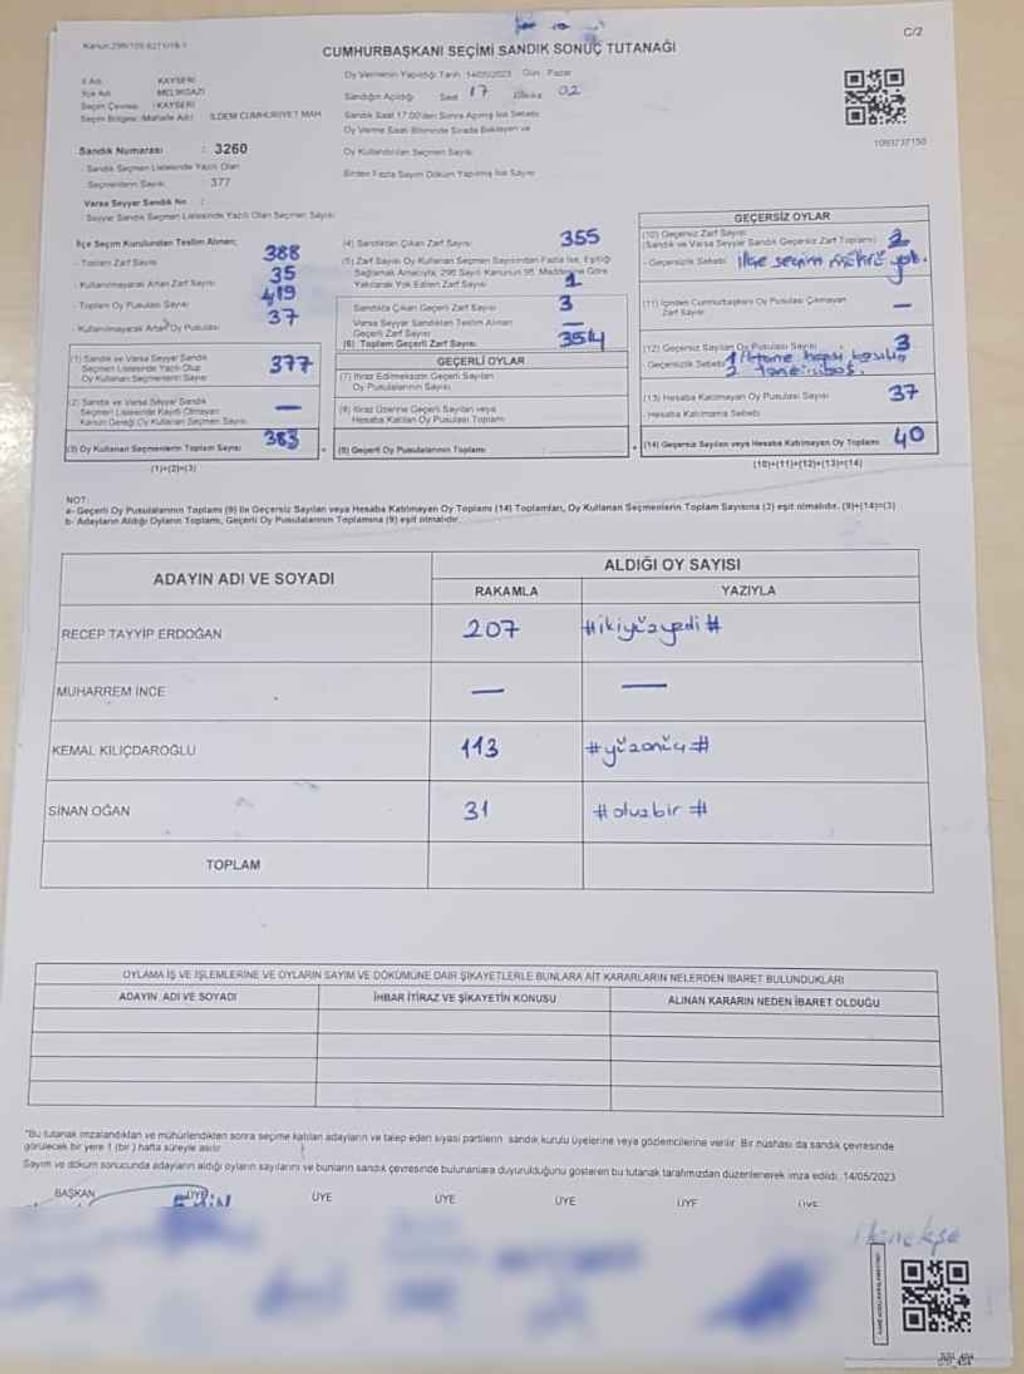 Kanun:298/105-6271/18-1
C/2
CUMHURBAŞKANI SEÇİMİ SANDIK SONUÇ TUTANAĞI
İl Adı KAYSERİ
İlçe Adı MELİKGAZİ
Seçim Çevresi : KAYSERİ
Seçim Bölgesi (Mahalle Adı) : İLDEM CUMHURİYET MAH
Sandık Numarası : 3260
- Sandık Seçmen Listesinde Yazılı Olan
Seçmenlerin Sayısı : 377
Varsa Seyyar Sandık No :
- Seyyar Sandık Seçmen Listesinde Yazılı Olan Seçmen Sayısı
Oy Vermenin Yapıldığı Tarih 14/05/2023 Gün Pazar
Sandığın Açıldığı Saat 17 Dakika 02
Sandık Saat 17.00'den Sonra Açılmış İse Sebebi
Oy Verme Saati Bitiminde Sırada Bekleyen ve
Oy Kullandırılan Seçmen Sayısı
Birden Fazla Sayım Döküm Yapılmış İse Sayısı
1093737150
İlçe Seçim Kurulundan Teslim Alınan;
- Toplam Zarf Sayısı 388
- Kullanılmayarak Artan Zarf Sayısı 35
- Toplam Oy Pusulası Sayısı 419
- Kullanılmayarak Artan Oy Pusulası 37
(1) Sandık ve Varsa Seyyar Sandık
Seçmen Listesinde Yazılı Olup
Oy Kullanan Seçmenlerin Sayısı 377
(2) Sandık ve Varsa Seyyar Sandık
Seçmen Listesinde Kayıtlı Olmayan
Kanun Gereği Oy Kullanan Seçmen Sayısı —
(3) Oy Kullanan Seçmenlerin Toplam Sayısı 383
(1)+(2)=(3)
(4) Sandıktan Çıkan Zarf Sayısı 355
(5) Zarf Sayısı Oy Kullanan Seçmen Sayısından Fazla İse, Eşitliği
Sağlamak Amacıyla, 298 Sayılı Kanunun 98. Maddesine Göre
Yakılarak Yok Edilen Zarf Sayısı 1
Sandıkta Çıkan Geçerli Zarf Sayısı 3
Varsa Seyyar Sandıktan Teslim Alınan
Geçerli Zarf Sayısı —
(6) Toplam Geçerli Zarf Sayısı 354
GEÇERLİ OYLAR
(7) İtiraz Edilmeksizin Geçerli Sayılan
Oy Pusulalarının Sayısı
(8) İtiraz Üzerine Geçerli Sayılan veya
Hesaba Katılan Oy Pusulası Toplamı
(9) Geçerli Oy Pusulalarının Toplamı
GEÇERSİZ OYLAR
(10) Geçersiz Zarf Sayısı
(Sandık ve Varsa Seyyar Sandık Geçersiz Zarf Toplamı)
- Geçersizlik Sebebi ilçe seçim mührü yok.
(11) İçinden Cumhurbaşkanı Oy Pusulası Çıkmayan
Zarf Sayısı —
(12) Geçersiz Sayılan Oy Pusulası Sayısı 3
- Geçersizlik Sebebi 1 tane hepsi basılı
2 tanesi boş.
(13) Hesaba Katılmayan Oy Pusulası Sayısı 37
- Hesaba Katılmama Sebebi
(14) Geçersiz Sayılan veya Hesaba Katılmayan Oy Toplamı 40
(10)+(11)+(12)+(13)=(14)
NOT:
a- Geçerli Oy Pusulalarının Toplamı (9) ile Geçersiz Sayılan veya Hesaba Katılmayan Oy Toplamı (14) Toplamları, Oy Kullanan Seçmenlerin Toplam Sayısına (3) eşit olmalıdır. (9)+(14)=(3)
b- Adayların Aldığı Oyların Toplamı, Geçerli Oy Pusulalarının Toplamına (9) eşit olmalıdır.
ADAYIN ADI VE SOYADI
ALDIĞI OY SAYISI
RAKAMLA YAZIYLA
RECEP TAYYİP ERDOĞAN 207 #ikiyüzyedi#
MUHARREM İNCE — —
KEMAL KILIÇDAROĞLU 113 #yüzonüç#
SİNAN OĞAN 31 #otuzbir#
TOPLAM
OYLAMA İŞ VE İŞLEMLERİNE VE OYLARIN SAYIM VE DÖKÜMÜNE DAİR ŞİKAYETLERLE BUNLARA AİT KARARLARIN NELERDEN İBARET BULUNDUKLARI
ADAYIN ADI VE SOYADI İHBAR İTİRAZ VE ŞİKAYETİN KONUSU ALINAN KARARIN NEDEN İBARET OLDUĞU
"Bu tutanak imzalandıktan ve mühürlendikten sonra seçime katılan adayların ve talep eden siyasi partilerin sandık kurulu üyelerine veya gözlemcilerine verilir. Bir nüshası da sandık çevresinde
görülecek bir yere 1 (bir) hafta süreyle asılır.
Sayım ve döküm sonucunda adayların aldığı oyların sayılarını ve bunların sandık çevresinde bulunanlara duyurulduğunu gösteren bu tutanak tarafımızdan düzenlenerek imza edildi. 14/05/2023
BAŞKAN ÜYE ÜYE ÜYE ÜYE ÜYE ÜYE